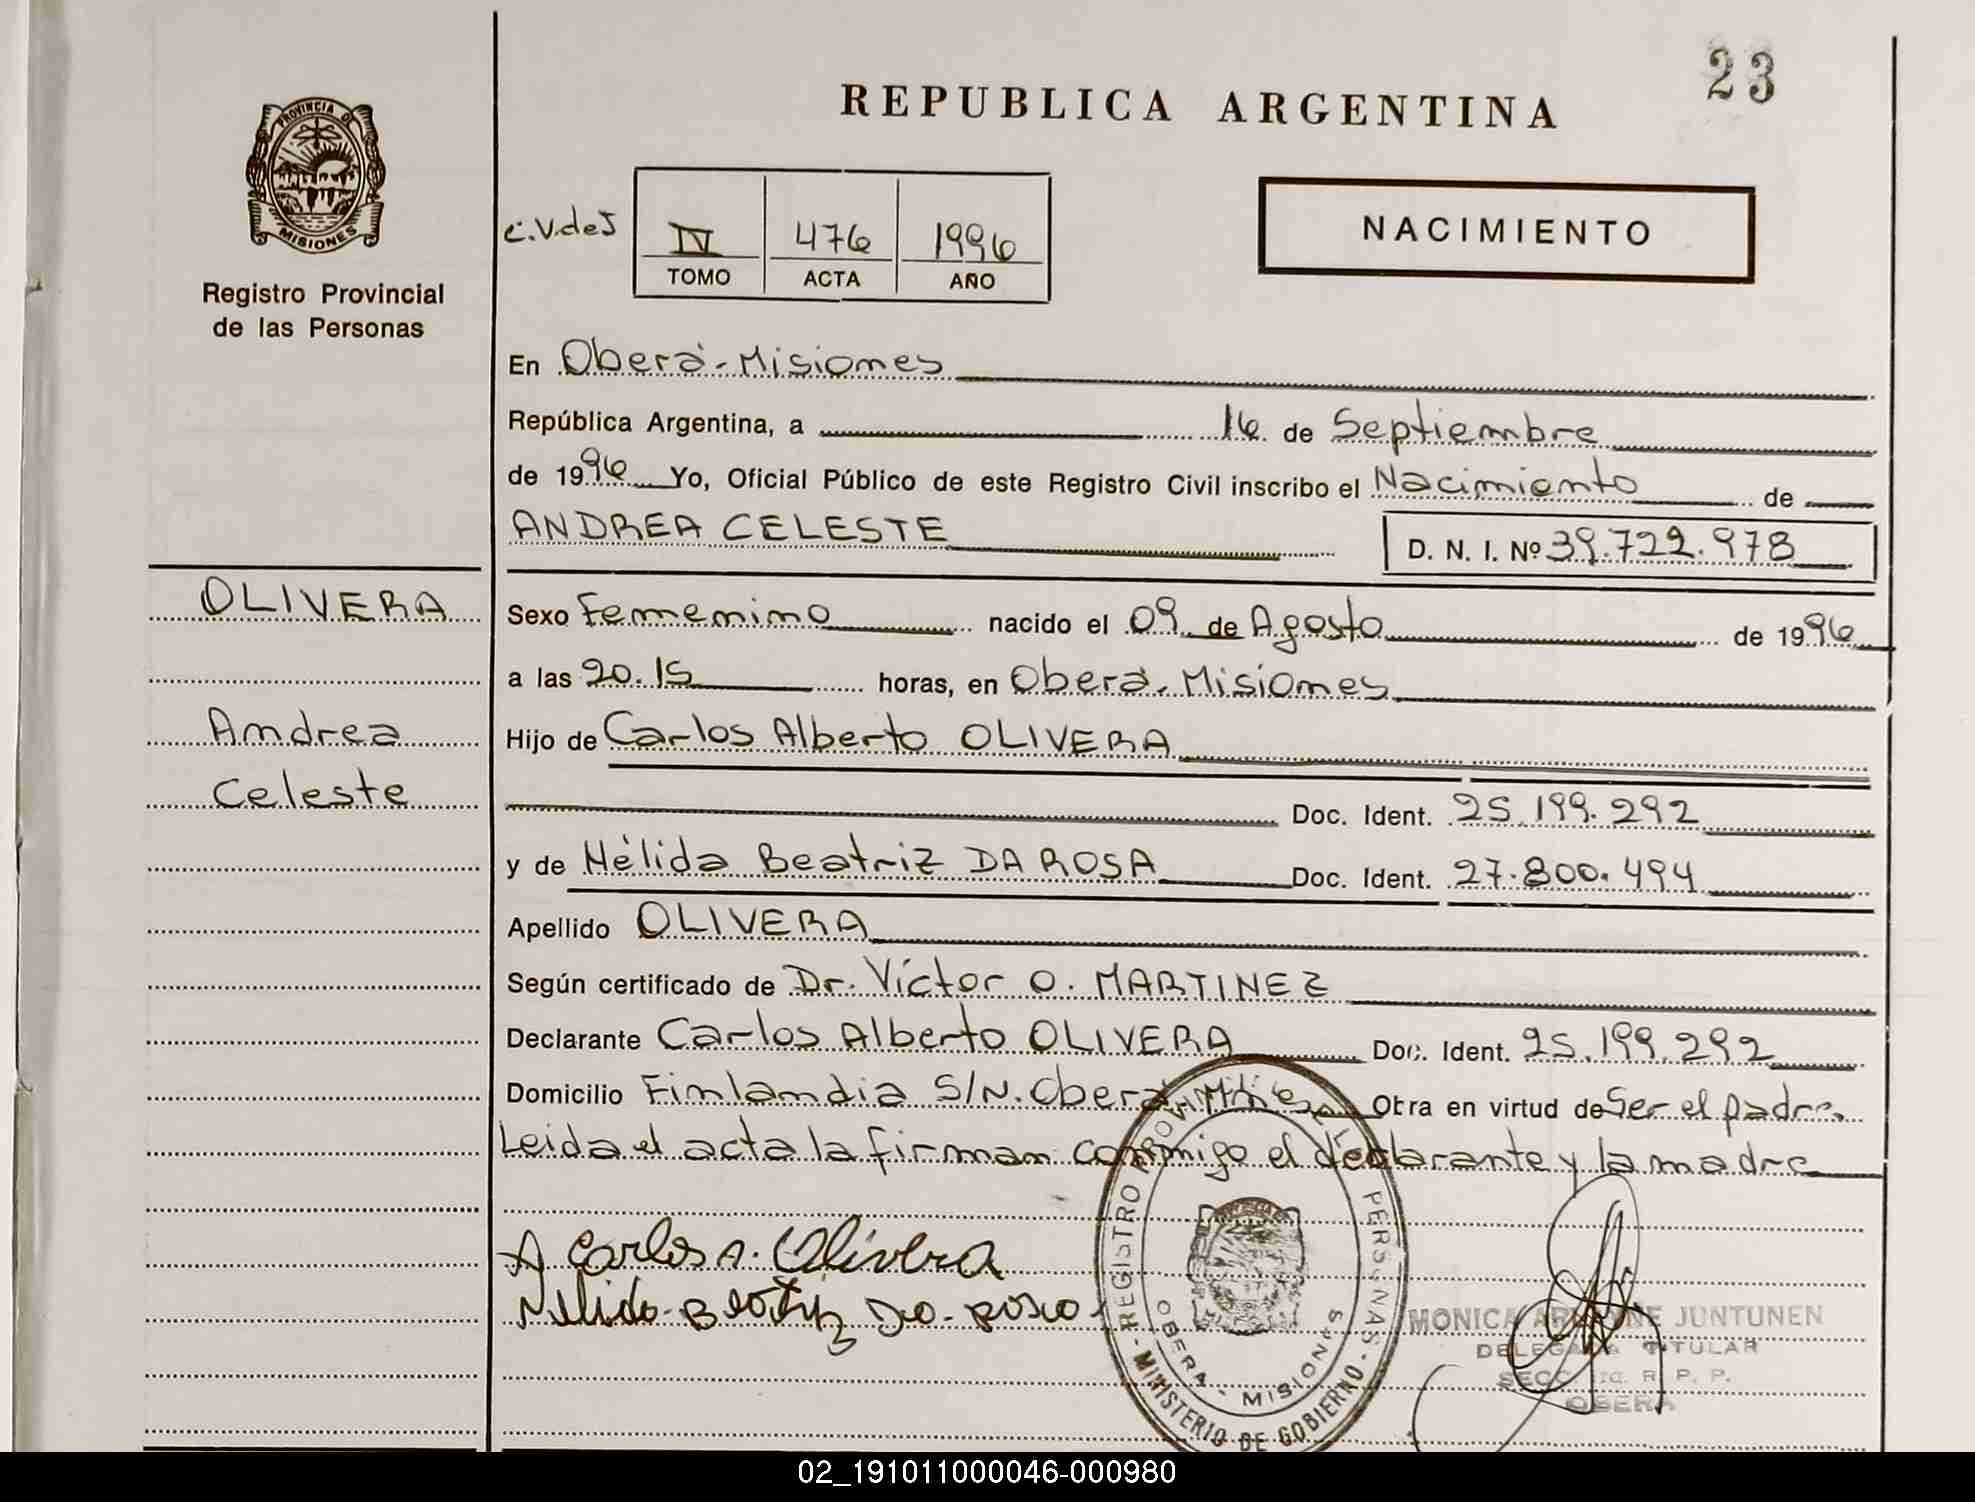 23
REPUBLICA ARGENTINA
PROVINCIA DE
MISIONES
Registro Provincial
de las Personas
C.V.deJ
IV 476 1996
TOMO ACTA AÑO
NACIMIENTO
En Oberá-Misiones
República Argentina, a 16 de Septiembre
de 1996 Yo, Oficial Público de este Registro Civil inscribo el Nacimiento de
ANDREA CELESTE D. N. I. Nº 39.722.978
OLIVERA
Sexo Femenino nacido el 09 de Agosto de 1996
a las 20.15 horas, en Oberá. Misiones
Andrea
Celeste
Hijo de Carlos Alberto OLIVERA
Doc. Ident. 25.199.292
y de Nélida Beatriz DA ROSA Doc. Ident. 27.800.494
Apellido OLIVERA
Según certificado de Dr. Víctor O. MARTINEZ
Declarante Carlos Alberto OLIVERA Doc. Ident. 25.199.292
Domicilio Finlandia S/N. Oberá Otra en virtud de Ser el padre.
Leida el acta la firman conmigo el declarante y la madre
Carlos A. Olivera
Nelida Beatriz Da rosa
REGISTRO PROVINCIAL DE LAS PERSONAS
OBERA - MISIONES
MINISTERIO DE GOBIERNO
MONICA JUNTUNEN
DELEGADA TITULAR
SECC R. P. P.
OBERA
02_191011000046-000980